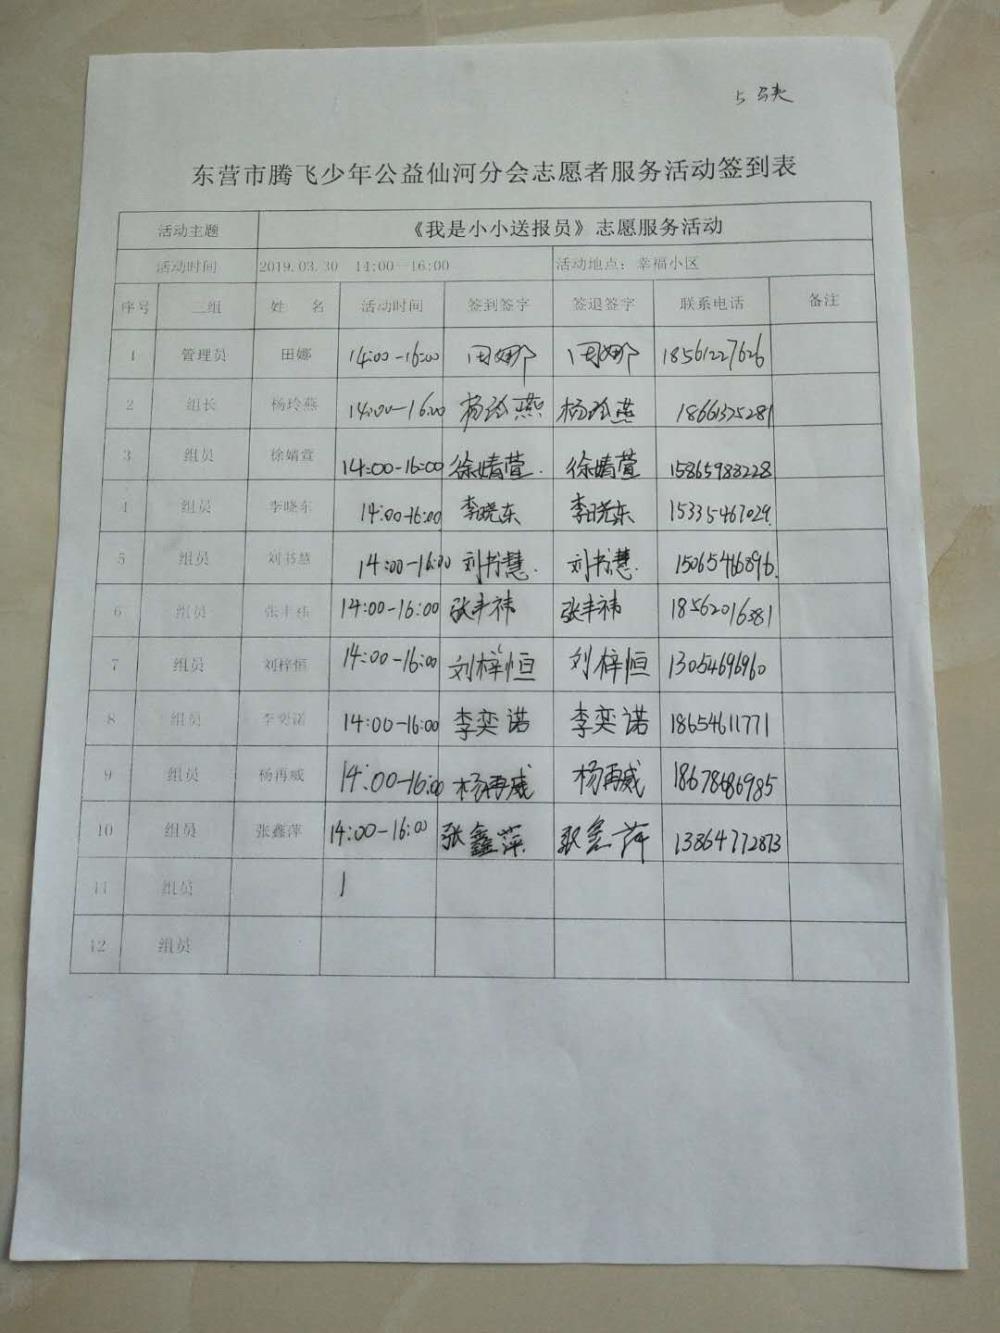 东营市腾飞少年公益仙河分会志愿者服务活动签到表
活动主题 《我是小小送报员》志愿服务活动
活动时间 2019.03.30 14:00—16:00 活动地点：幸福小区
序号 二组 姓 名 活动时间 签到签字 签退签字 联系电话 备注
1 管理员 田娜 14:00-16:00 田娜 田娜 18561227626
2 组长 杨玲燕 14:00-16:00 杨玲燕 杨玲燕 18661325281
3 组员 徐婧萱 14:00-16:00 徐婧萱. 徐婧萱 15865988228
4 组员 李晓东 14:00-16:00 李晓东 李晓东 15335461029
5 组员 刘书慧 14:00-16:00 刘书慧. 刘书慧. 15065466896.
6 组员 张丰祎 14:00-16:00 张丰祎 张丰祎 18562016381
7 组员 刘梓恒 14:00-16:00 刘梓恒 刘梓恒 13054696960
8 组员 李奕诺 14:00-16:00 李奕诺 李奕诺 18654611771
9 组员 杨再威 14:00-16:00 杨再威 杨再威 18678686985
10 组员 张鑫萍 14:00-16:00 张鑫萍 张鑫萍 13864772873
11 组员
12 组员